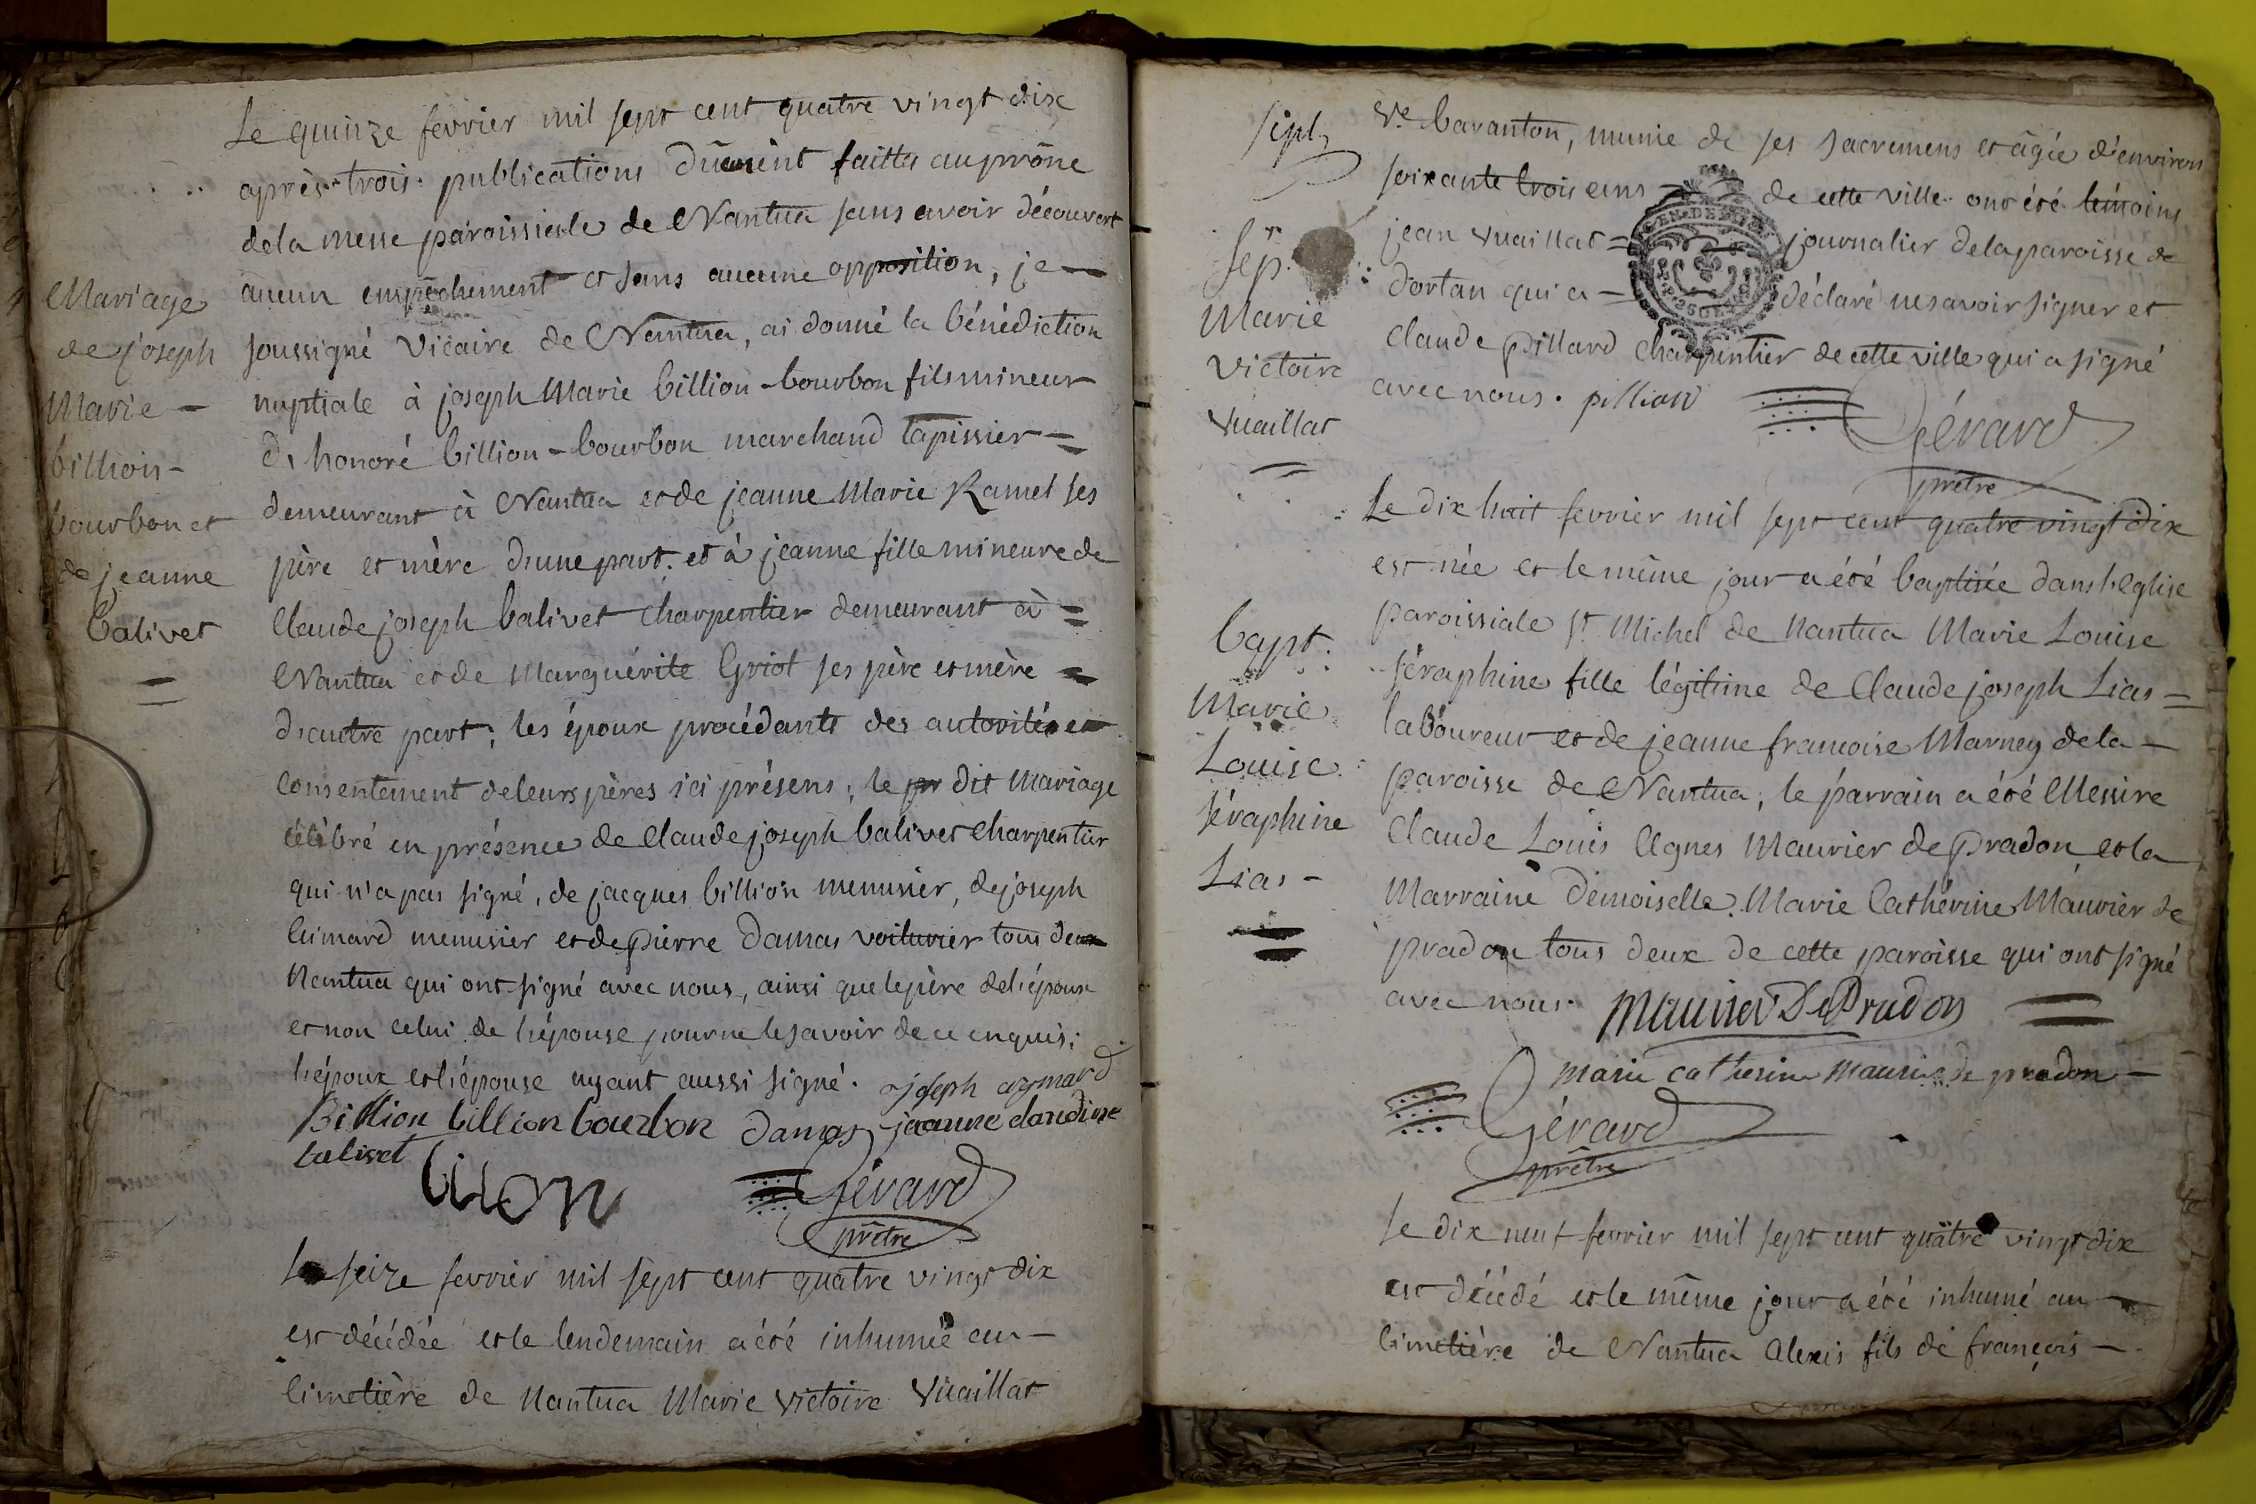 Le quinze fevrier mil sept cent quatre vingt dix
après trois publications dûment faittes au prône
de la messe paroissiale de Nantua sans avoir découvert
aucun empêchement et sans aucune opposition, je
Mariage
de joseph
Marie
billion
bourbon et
de jeanne
balivet
soussigné vicaire de Nantua, ai donné la bénédiction
nuptiale à joseph Marie billion-bourbon fils mineur
d'honoré billion-bourbon marchand tapissier
demeurant à Nantua et de jeanne Marie Ramel ses
père et mère d'une part. et à jeanne fille mineure de
Claude joseph balivet charpentier demeurant à
Nantua et de Marguérite Griot ses père et mère
d'autre part; les époux procédants des autorités et
consentement de leurs pères ici présens; le dit Mariage
célébré en présence de Claude joseph balivet charpentier
qui n'a pas signé, de jacques billion menusier, de joseph
menusier et de pierre Damas voiturier tous deux
Nantua qui ont signé avec nous, ainsi que le père de l'époux
et non celui de l'épouse pour ne le savoir de ce enquis;
l'époux et l'épouse ayant aussi signé. joseph aymard
Billion billion bourbon damas jeanne claudine
balivet
billon
Gérard
prêtre
Le seize fevrier mil sept cent quatre vingt dix
est décédée et le lendemain a été inhumée au
Cimetière de Nantua Marie Victoire Vuaillat
sépt
Sep.re
Marie
Victoire
Vuaillat
Ve. baranton, munie de ses sacremens et âgée d'environ
soixante trois ans de cette ville ont été témoins
jean Vuaillat journalier de la paroisse de
dortan qui a déclaré ne savoir signer et
Claude pillard charpentier de cette ville qui a signé
avec nous. pillion
Gérard
prêtre
Le dix huit fevrier mil sept cent quatre vingt dix
est née et le même jour a été baptisée dans l'eglise
bapt.
Marie
Louise
séraphine
Lias
paroissiale St. Michel de Nantua Marie Louise
séraphine fille légitime de Claude joseph Lias
laboureur et de jeanne francoise Marney de la
paroisse de Nantua; le parrain a été Messire
Claude Louis Agnes Maurier de Pradon et la
Marraine Demoiselle Marie Cathérine Maurier de
pradon tous deux de cette paroisse qui ont signé
avec nous. Maurier De Pradon
Marie Catherine Maurier de pradon
Gérard
prêtre
Le dix neuf fevrier mil sept cent quatre vingt dix
est décédé et le même jour a été inhumé au
Cimetière de Nantua Alexis fils de françois